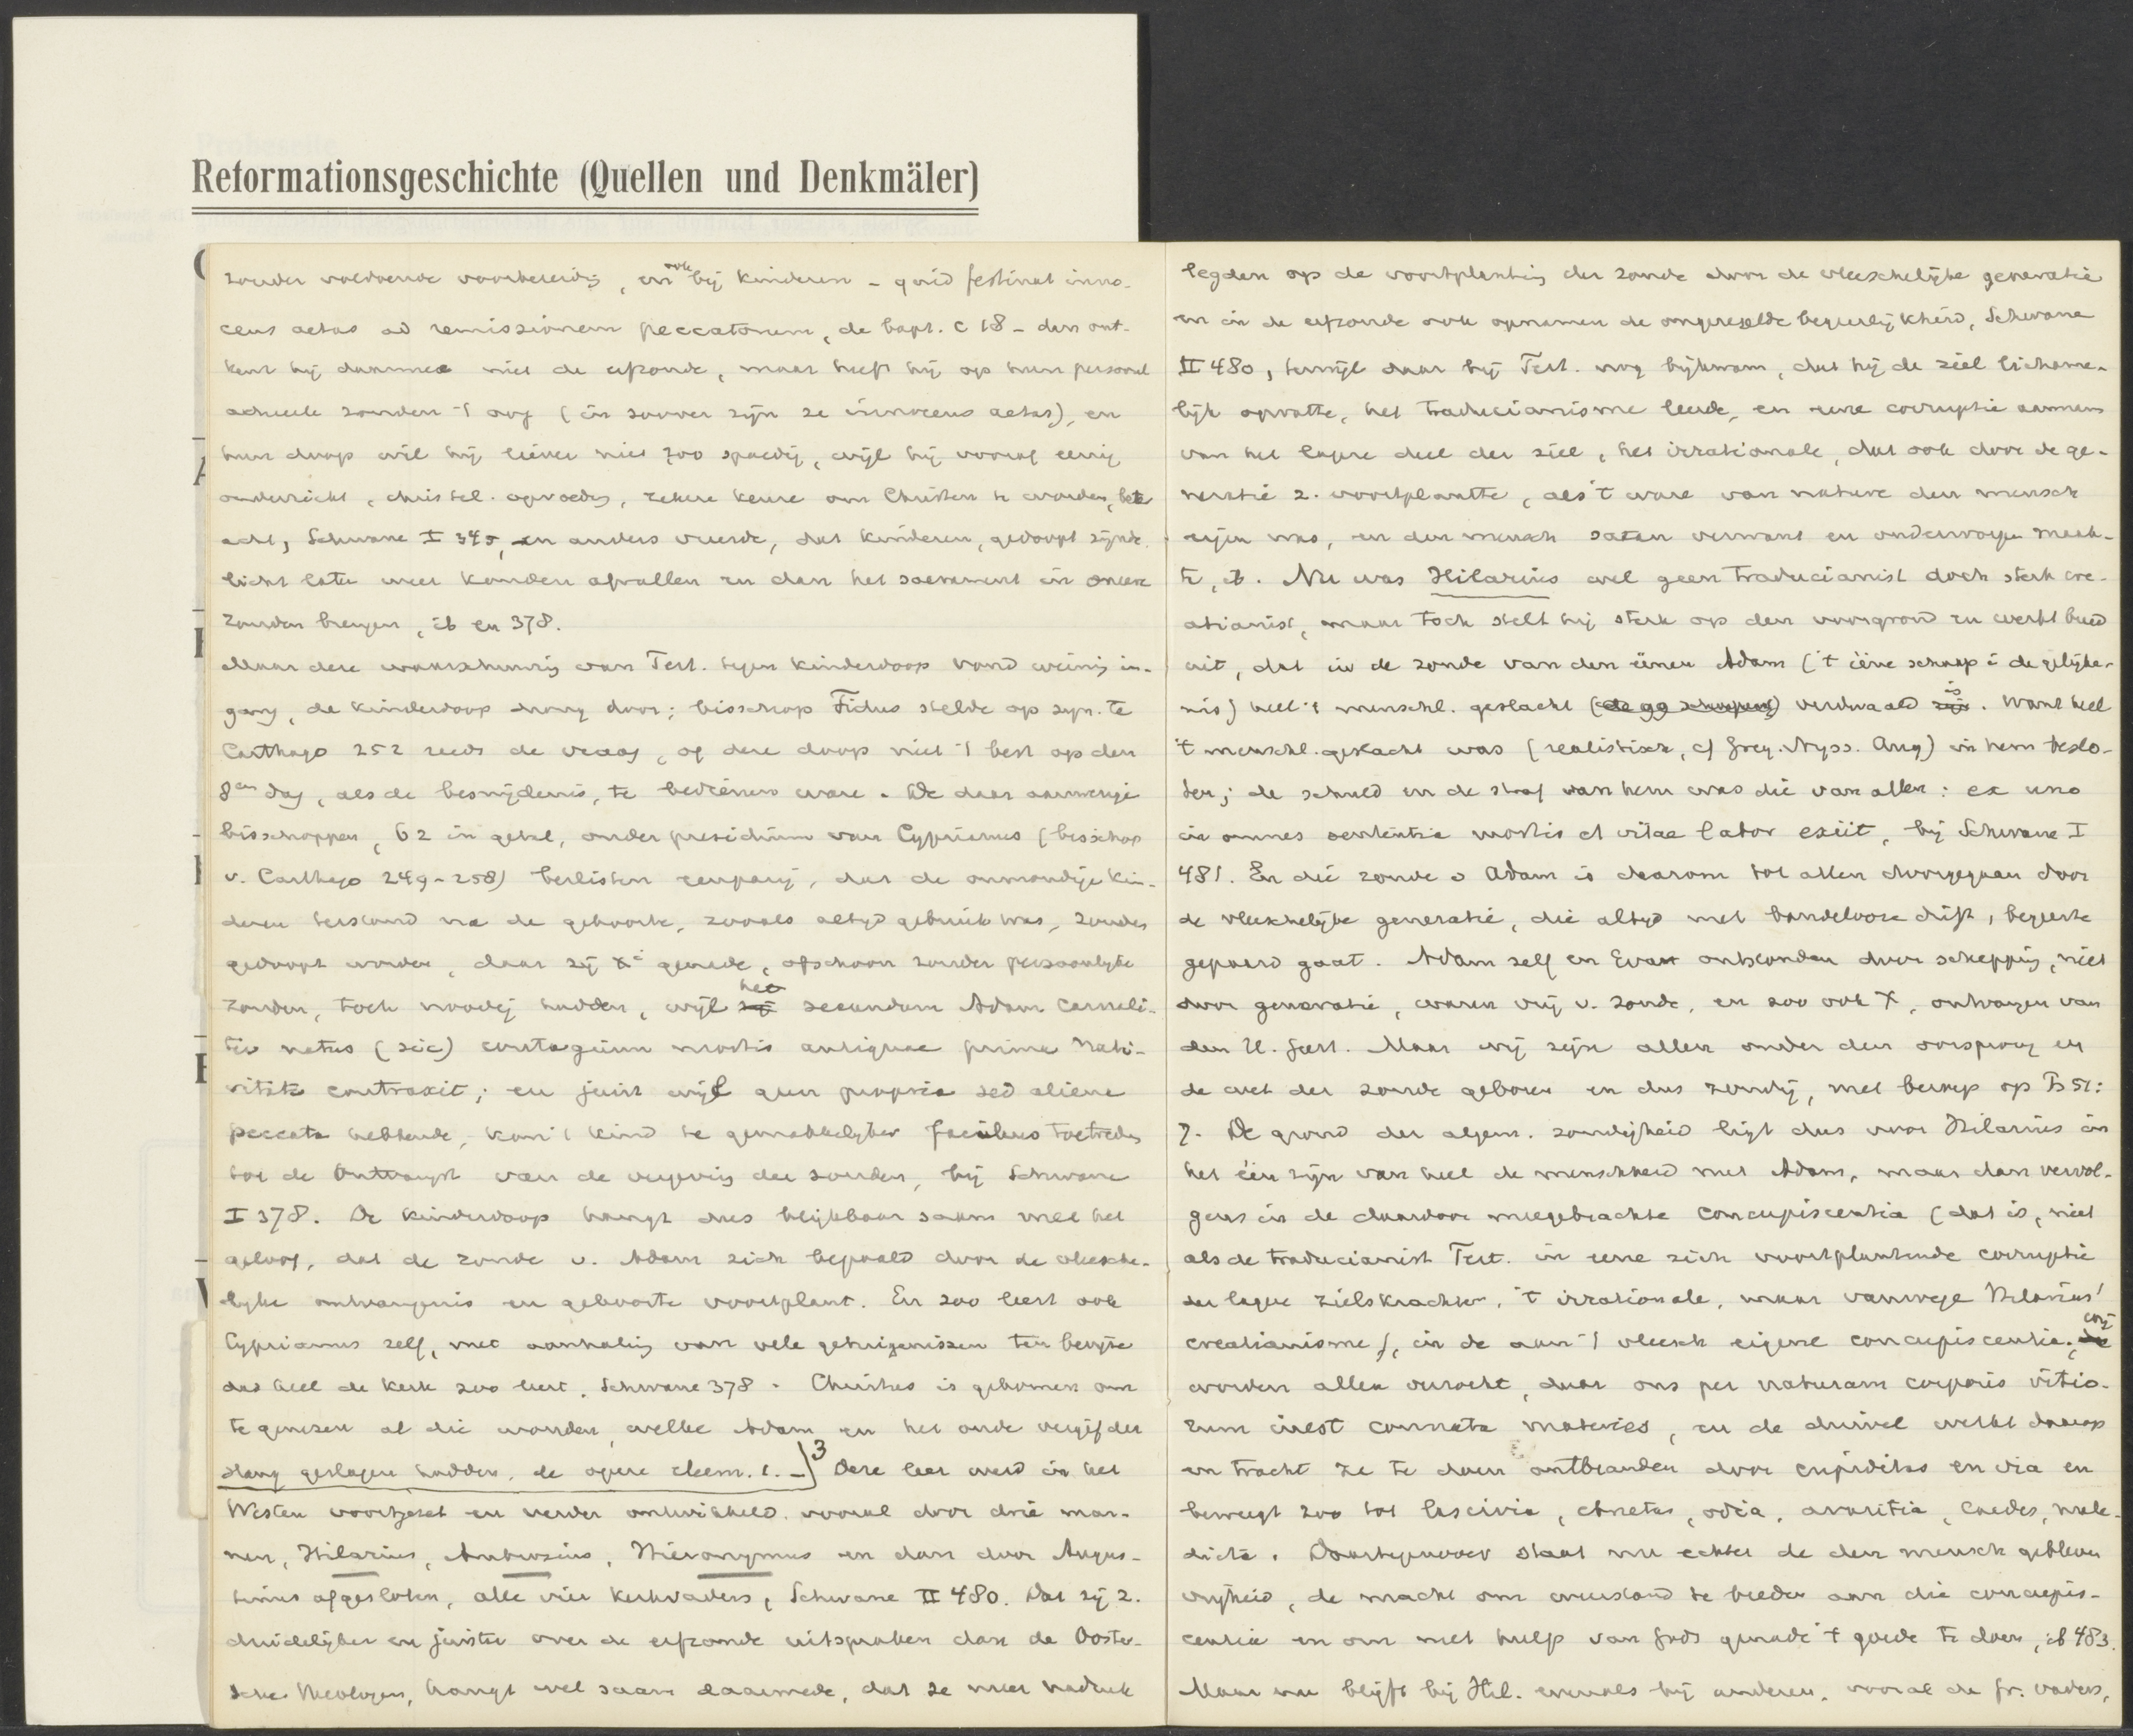 Reformationsgeschichte (Quellen und Denkmäler)
zonder voldoende voorbereidg, en ook bij kinderen – quid festinat inno-
cens aetas ad remissionem peccatorum, de bapt. c 18 – dan ont-
kent hij daarmee niet de erfzonde, maar heeft hij op hun personel
actueele zonden 't oog (in zoover zijn ze innocens aetas), en
hun doop wil hij liever niet zoo spoedig, wijl hij vooraf eenig
onderricht, christel. opvoedg, zekere keuze om Christen te worden,
acht, Schwane I 345, en anders vreesde, dat kinderen, gedoopt zijnde
licht later weer konden afvallen en dan het sacrament in
zouden brengen, ib en 378.
Maar deze waarschuwing van Tert. tegen kinderdoop vond weinig in-
gang, de kinderdoop drong door; bisschop Fidus stelde op syn. te
Carthago 252 reeds de vraag, of deze doop niet 't best op den
8en dag, als de besnijdenis, te bedienen ware. De daar aanwezige
bisschoppen, 62 in getal, onder presidium van Cyprianus (bisschop
v. Carthago 249-258) beslisten eenparig, dat de onmondige kin-
deren terstond na de geboorte, zooals altijd gebruik was, zouden
gedoopt worden, daar zij genade, ofschoon zonder persoonlijke
zonden, toch noodig hadden, wijl het secundum Adam carnali-
ter natus (sic) contagium mortis antiquae prima nati-
vitate contraxit; en juist wijl geen propria sed aliena
peccata hebbende, kan 't kind te gemakkelijker facilius toetreden
tot de ontvangst van de vergevig der zonden, bij Schwane
I 378. De kinderdoop hangt dus blijkbaar saam met het
geloof, dat de zonde v. Adam zich bepaald door de vleesche-
lijke ontvangenis en geboorte voortplant. En zoo leert ook
Cyprianus zelf, met aanhaling van vele getuigenissen ten bewijze
dat heel de kerk zoo leert, Schwane 378. Christus is gekomen om
te genezen al die wonden, welke Adam en het oude vergif der
slang geslagen hadden, de opere eleem. 1. –] 3 Deze leer werd in het
Westen voortgezet en verder ontwikkeld vooral door drie man-
nen, Hilarius, Ambrosius, Hieronymus en dan door Augus-
tinus afgesloten, alle vier kerkvaders, Schwane II 480. Dat zij z.
duidelijker en juister over de erfzonde uitspraken dan de Ooster-
sche theologen, hangt wel saam daarmede, dat ze meer nadruk
legden op de voortplanting der zonde door de vleeschelijke generatie
en in de erfzonde ook opnamen de ongeregelde begeerlijkheid, Schwane
II 480, terwijl daar bij Tert. nog bijkwam, dat hij de ziel lichame-
lijk opvatte, het traducianisme leerde, en eene corruptie aannam
van het lagere deel der ziel, het irrationale, dat ook door de ge-
neratie z. voortplantte, als 't ware van nature den mensch
eigen was, en den mensch satan verwant en onderworpen maak-
te, ib. Nu was Hilarius wel geen traducianist doch sterk cre-
atianist, maar toch stelt hij sterk op den voorgrond en werkt breed
uit, dat in de zonde van den éénen Adam ('t ééne schaap i de gelijke-
nis) heel 't menschl. geslacht (de 99 schapen) verdwaald is. Want heel
't menschl. geslacht was (realistisch, cf Greg. Nyss. Aug) in hem beslo-
ten; de schuld en de straf van hem was die van allen: ex uno
in omnes sententia mortis et vitae labor exiit, bij Schwane I
481. En die zonde v Adam is daarom tot allen doorgegaan door
de vleeschelijke generatie, die altijd met bandelooze drift, begeerte
gepaard gaat. Adam zelf en Eva ontstonden door schepping, niet
door generatie, waren vrij v. zonde, en zoo ook X, ontvangen van
den H. Geest. Maar wij zijn allen onder den oorsprong en
de wet der zonde geboren en dus zondig, met beroep op Ps 51:
7. De grond der algem. zondigheid ligt dus voor Hilarius in
het één zijn van heel de menschheid met Adam, maar dan vervol-
gens in de daardoor meegebrachte concupiscentia (dat is, niet
als de traducianist Tert. in eene zich voortplantende corruptie
der lagere zielskrachten, 't irrationale, maar vanwege Hilarius'
creatianisme), in de aan 't vleesch eigene concupiscentia. wij
worden allen verzocht, daar ons per naturam corporis vitio-
rum inest connata materies, en de duivel werkt daarop
en tracht ze te doen ontbranden door cupiditas en via en
beweegt zoo tot lascivia, ebrietas, odia, avaritia, caedes, male-
dicta. Daartegenover staat nu echter de den mensch gebleven
vrijheid, de macht om weerstand te bieden aan die concupis-
centia en om met hulp van Gods genade 't goede te doen, ib 483.
Maar nu blijft bij Hil. evenals bij anderen, vooral de gr. vaders,